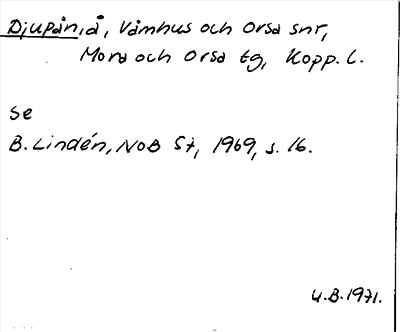 Djupån, å, Våmhus och Orsa snr,
Mora och Orsa tg, Kopp. l.
Se
B. Lindén, NoB 57, 1969, s. 16.
U.B. 1971.